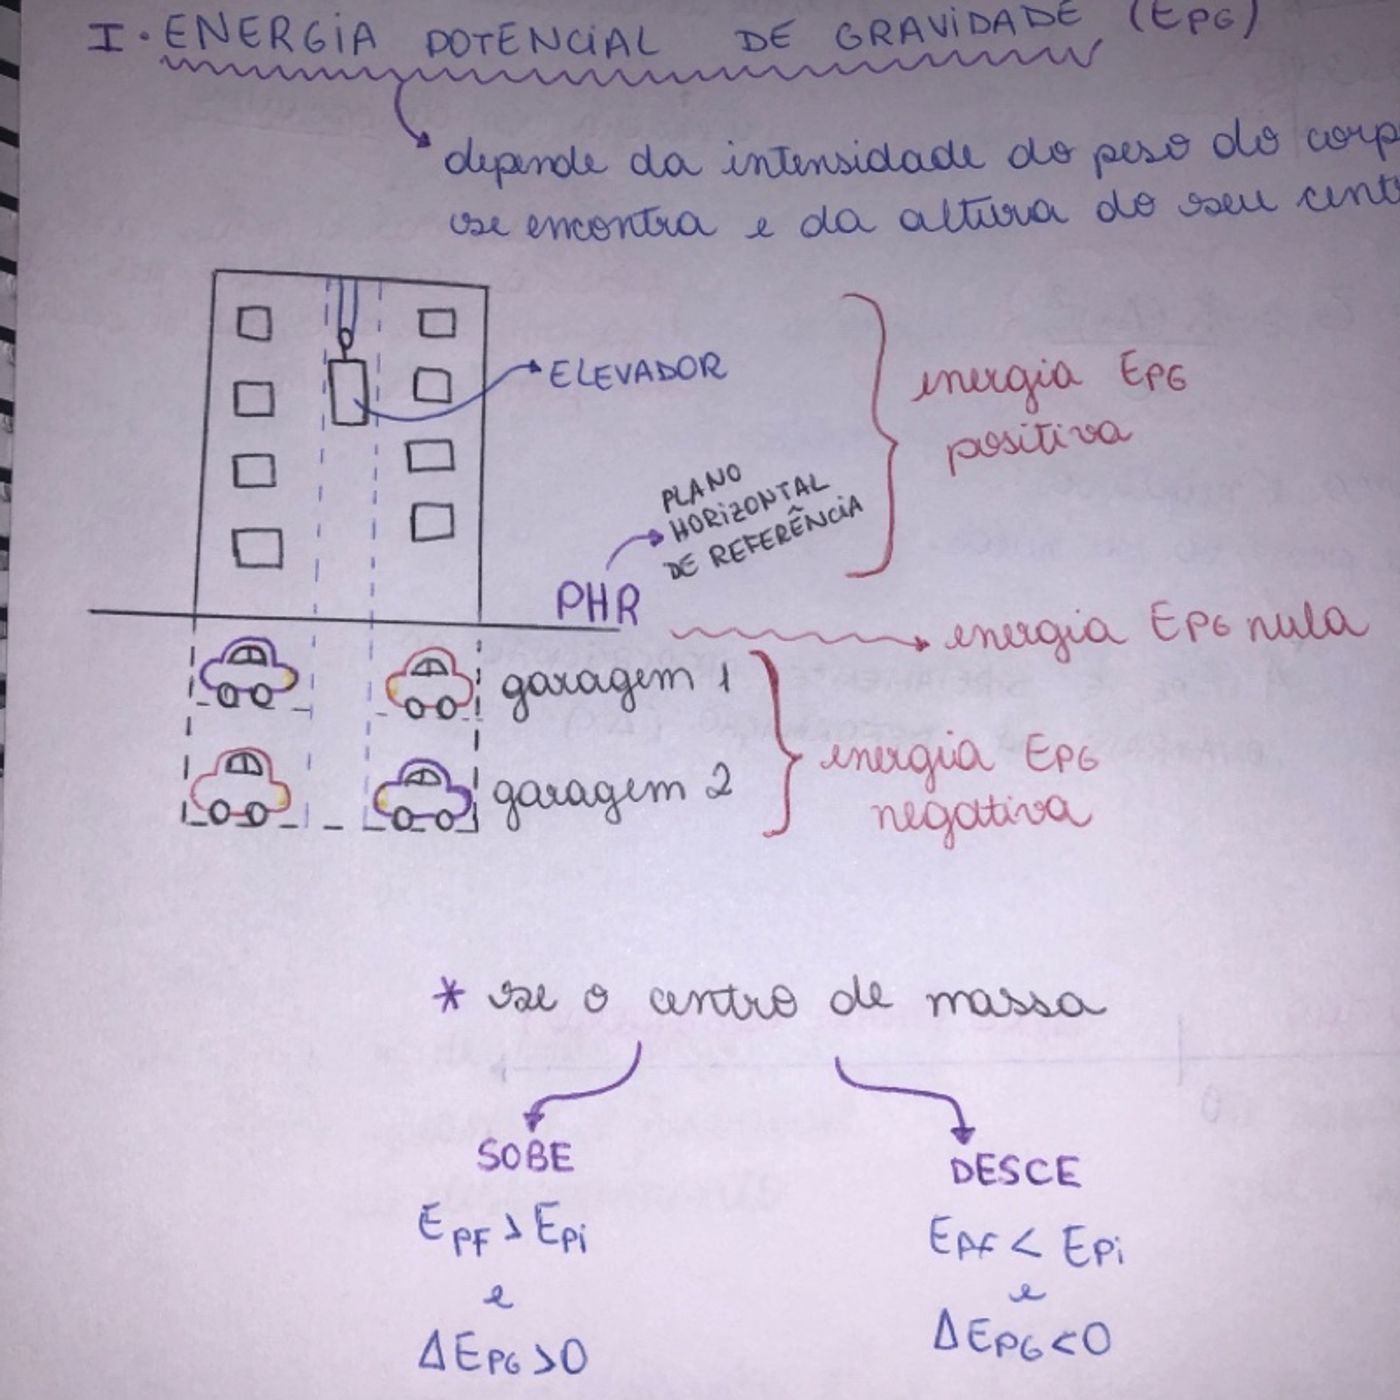 I. ENERGIA POTENCIAL DE GRAVIDADE (EPG)
depende da intensidade do peso do corp
se encontra e da altura do seu cent
ELEVADOR
energia EPG
positiva
PLANO
HORIZONTAL
DE REFERÊNCIA
PHR
energia EPG nula
garagem 1
garagem 2
energia EPG
negativa
* se o centro de massa
SOBE
DESCE
EPF > EPi
EPf < EPi
e
e
ΔEPG>0
ΔEPG<0